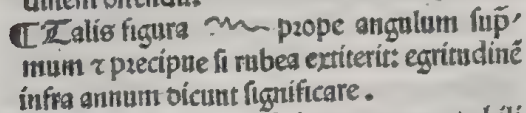 ¶ Talis figura prope angulum sup̄-
mum ⁊ precipue si rubea extiterit: egritudinē
infra annum dicunt significare.